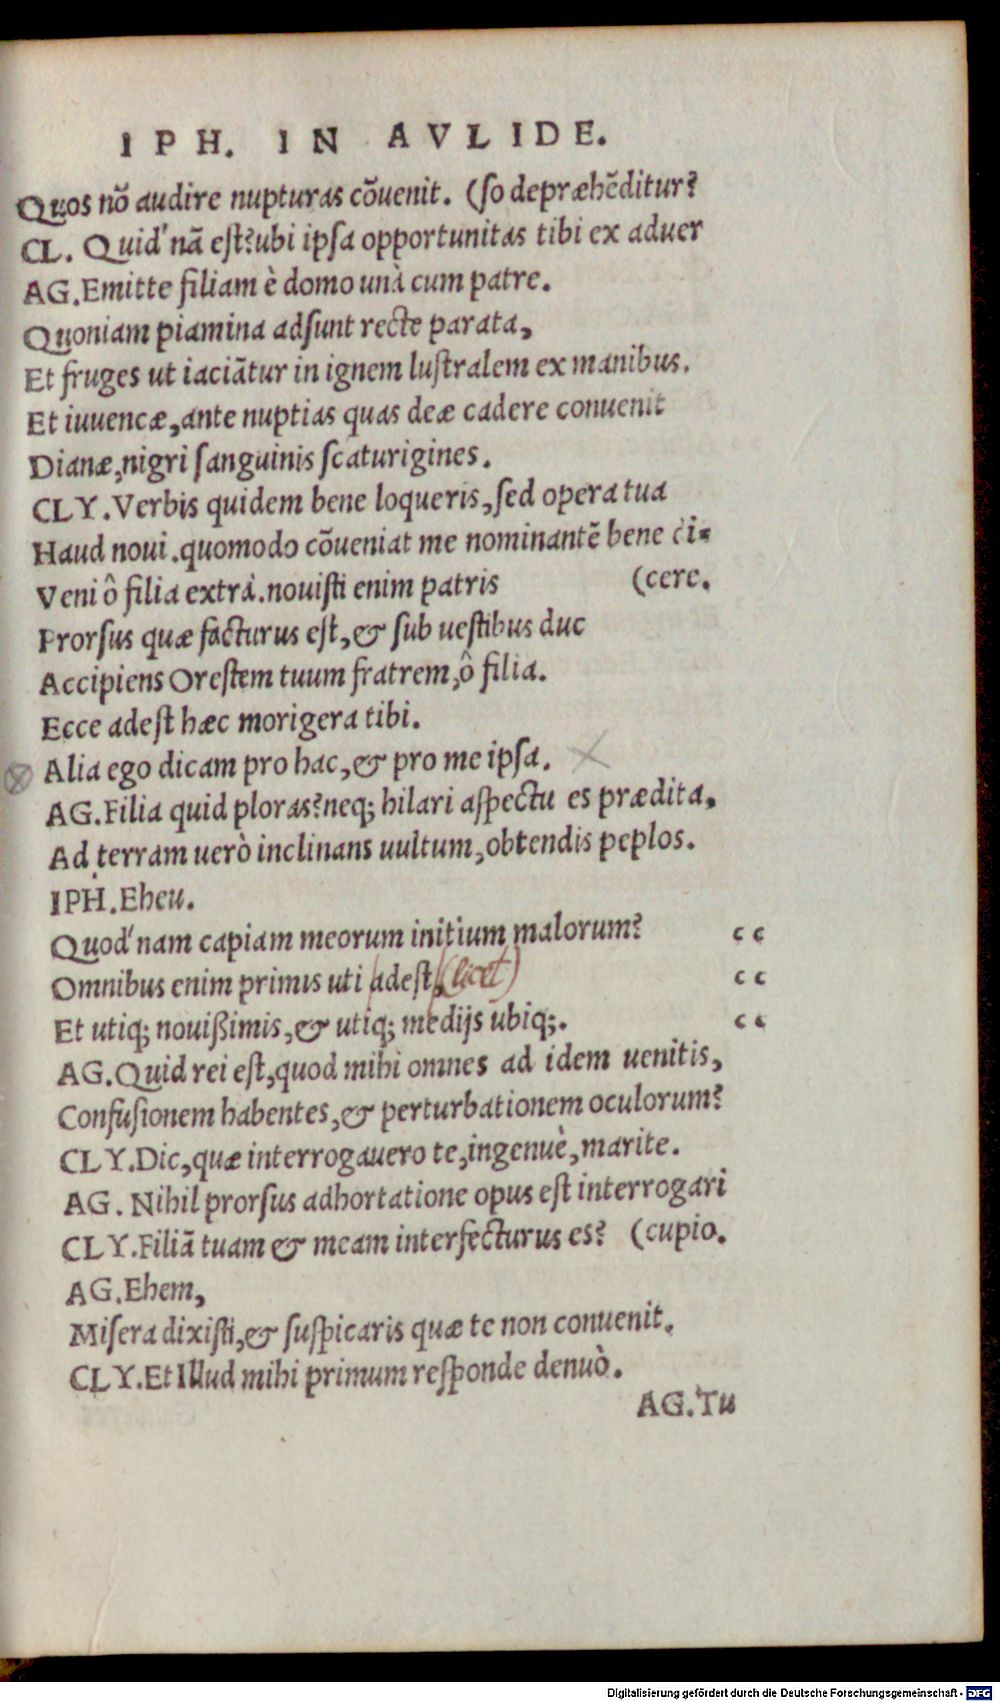 IPH. IN AVLIDE.
Quos nō audire nupturas cōuenit. (ſo depræhēditur?
CL. Quid'nā eſt?ubi ipſa opportunitas tibi ex aduer
AG.Emitte filiam è domo unà cum patre.
Quoniam piamina adſunt recte parata,
Et fruges ut iaciātur in ignem luſtralem ex manibus.
Et iuuencæ,ante nuptias quas deæ cadere conuenit
Dianæ,nigri ſanguinis ſcaturigines.
CLY.Verbis quidem bene loqueris,ſed opera tua
Haud noui.quomodo cōueniat me nominantē bene di-
Veni ô filia extrà.nouiſti enim patris (cere.
Prorſus quæ facturus eſt,& ſub ueſtibus duc
Accipiens Oreſtem tuum fratrem,ô filia.
Ecce adeſt hæc morigera tibi.
Alia ego dicam pro hac,& pro me ipſa.
AG.Filia quid ploras?neq; hilari aſpectu es prædita,
Ad terram uerò inclinans uultum,obtendis peplos.
IPH.Eheu.
Quod'nam capiam meorum initium malorum? cc
Omnibus enim primis uti adeſt, (licet) cc
Et utiq; nouißimis,& utiq; medijs ubiq;. cc
AG.Quid rei eſt,quod mihi omnes ad idem uenitis,
Confuſionem habentes,& perturbationem oculorum?
CLY.Dic,quæ interrogauero te,ingenuè,marite.
AG. Nihil prorſus adhortatione opus eſt interrogari
CLY.Filiā tuam & meam interfecturus es? (cupio.
AG.Ehem,
Miſera dixiſti,& ſuſpicaris quæ te non conuenit.
CLY.Et Illud mihi primum reſponde denuò.
AG.Tu
Digitalisierung gefördert durch die Deutsche Forschungsgemeinschaft - DFG